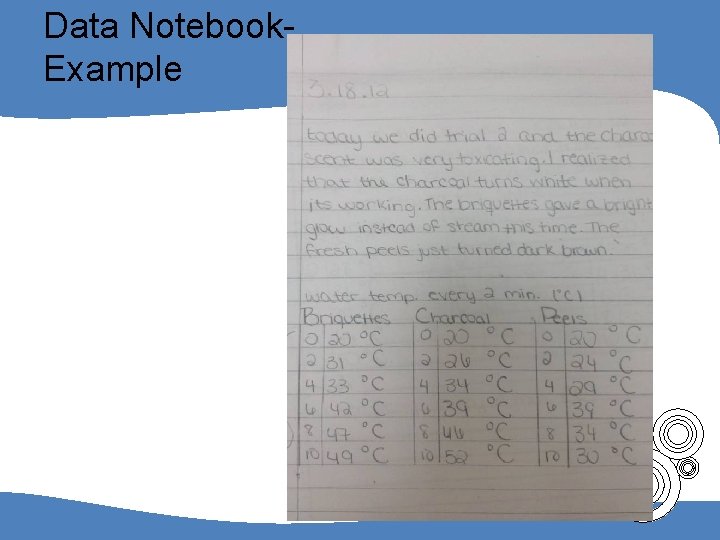 Data Notebook-
Example
3.18.12
today we did trial 2 and the charco
scent was very toxicating. I realized
that the charcoal turns white when
its working. The briquettes gave a bright
glow instead of steam this time. The
fresh peels just turned dark brown.
water temp. every 2 min. (°C)
Briquettes Charcoal Peels
0 20 °C 0 20 °C 0 20 °C
2 31 °C 2 26 °C 2 24 °C
4 33 °C 4 34 °C 4 29 °C
6 42 °C 6 39 °C 6 39 °C
8 47 °C 8 46 °C 8 34 °C
10 49 °C 10 52 °C 10 30 °C